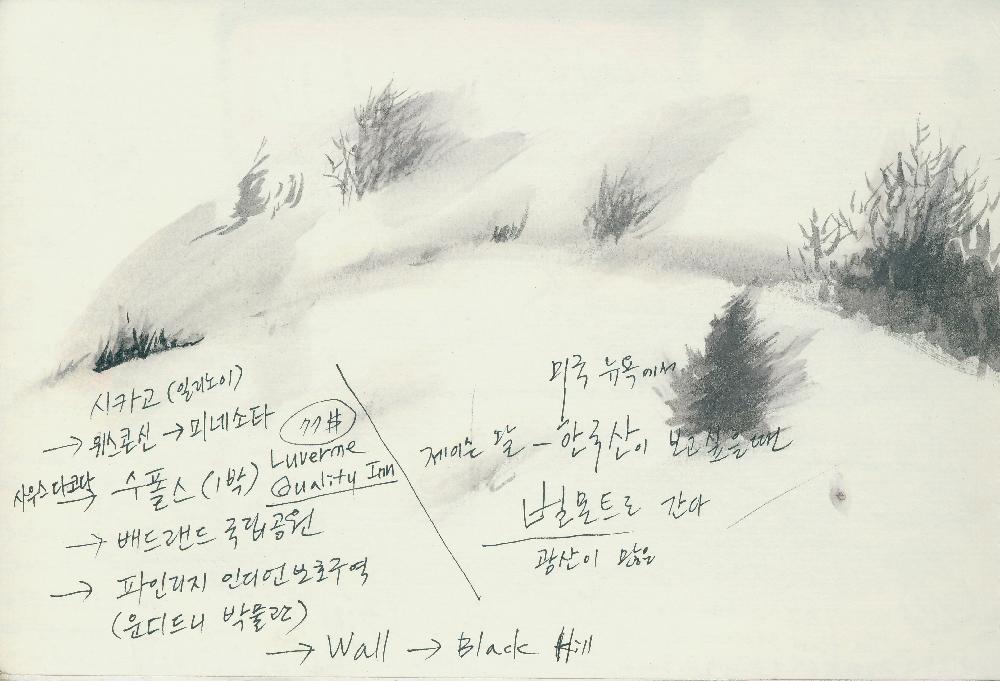 시카고 (일리노이)
→ 위스콘신 → 미네소타
77#
사우스다코탁 수폴스 (1박) Luverne
Quality Inn
→ 배드랜드 국립공원
→ 파인리지 인디언보호구역
(운디드니 박물관)
→ Wall → Black Hill
미국 뉴욕에서
달 - 한국산이 보고싶을땐
벨몬트로 간다
광산이 많은